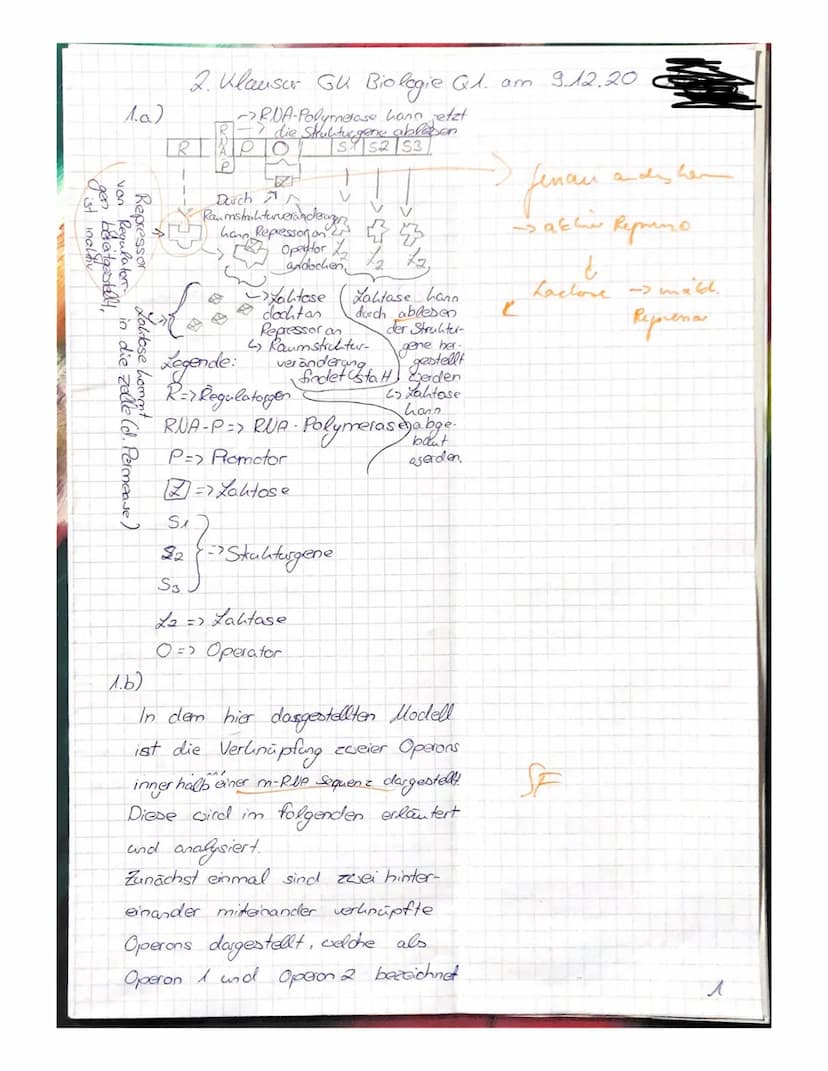 2. Klausur GK Biologie Q1. am 9.12.20
1.a)
-> RNA-Polymerase kann jetzt
-> die Strukturgene ablesen
R
R N A P
P
O
S1 S2 S3
Z
Repressor
von Regulator-
gen bereitgestellt,
ist inaktiv
Durch
Raumstrukturveränderung
kann Repressor an
Operator
andocken
L2
L2
L2
Laktose kommt
in die Zelle (d. Permease)
-> Laktose
dockt an
Repressor an
↳ Raumstruktur-
veränderung
findet statt
Laktase kann
durch ablesen
der Struktur-
gene her-
gestellt
werden
↳ Laktose
kann
abge-
baut
werden.
genau anders
-> aktiver Repressor
Lactose ->
Repressor
Legende:
R => Regulatorgen
RNA-P => RNA-Polymerase
P => Promotor
Z => Laktose
S1
S2 } => Strukturgene
S3
L2 => Laktase
O => Operator
1.b)
In dem hier dargestellten Modell
ist die Verknüpfung zweier Operons
innerhalb einer m-RNA Sequenz dargestellt.
SF
Diese wird im folgenden erläutert
und analysiert.
Zunächst einmal sind zwei hinter-
einander miteinander verknüpfte
Operons dargestellt, welche als
Operon 1 und Operon 2 bezeichnet
1